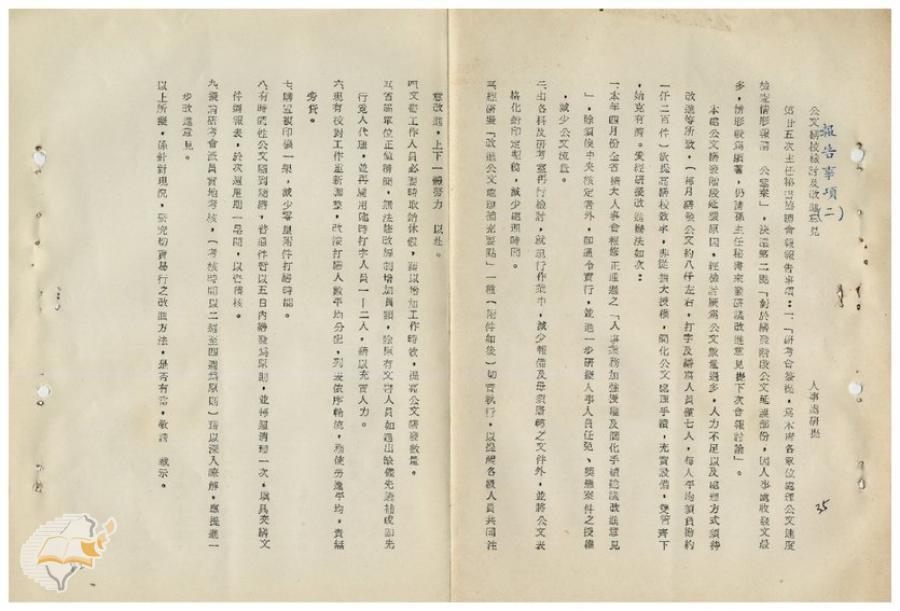 報告事項(二)
35
公文繕校檢討及改進意見
人事處研擬
第廿五次主任秘書協調會報報告事項:一、「研考會簽提,為本府各單位處理公文速度
檢查情形報請 公鑒案」,決議第二點「對於繕發階段公文延誤部份,因人事處收發文最
多,情形較為顯著,仍請孫主任秘書來發研議改進意見提下次會報討論」。
本處公文繕發階段延誤原因,經檢討厥為公文數量過多,人力不足以及處理方式須待
改進等所致,(每月繕發公文約八仟左右,打字及繕寫人員僅七人,每人平均須負擔約
一仟二百件)欲提高繕校效率,非從擴大授權,簡化公文處理手續,充實設備,雙管齊下
,始克有濟。爰經研擬改進辦法如次:
一、本年四月份全省擴大人事會報修正通過之「人事業務加強授權及簡化手續建議改進意見
」,除須俟中央核定者外,即通令實行,並進一步研擬人事人員任免、獎懲案件之授權
,減少公文流量。
二、由各科及研考室再行檢討,就現行作業中,減少報備及毋須層轉之文件外,並將公文表
格化針印定期稿,減少處理時間。
三、經研擬「改進公文處理補充要點」一種(附件如後)切實執行,以提醒各級人員共同注
意改進,上下一體努力 以赴。
四、文書工作人員必要時取銷休假,藉以增加工作時效,提高公文繕發數量。
五、各單位正值精簡,無法修改編制增加員額,除原有文書人員如遇出缺儘先遞補或即先
行覓人代理,並再雇用臨時打字人員一—二人,藉以充實人力。
六、現有校對工作重新調整,改按打繕人數平均分配,列表依序輪流,務使勞逸平均,責無
旁貸。
七、購置複印機一架,減少零星附件打繕時間。
八、有時間性公文隨到隨繕,普通件暫以五日內繕發為原則,並每週清理一次,填具交繕文
件週報表,於次週星期一呈閱,以資稽核。
九、擬請研考會派員實地考核,(考核時間以二週至四週為原則)藉以深入瞭解,惠提進一
步改進意見。
以上所擬,係針對現況,研究切實易行之改進方法,是否有當,敬請 裁示。